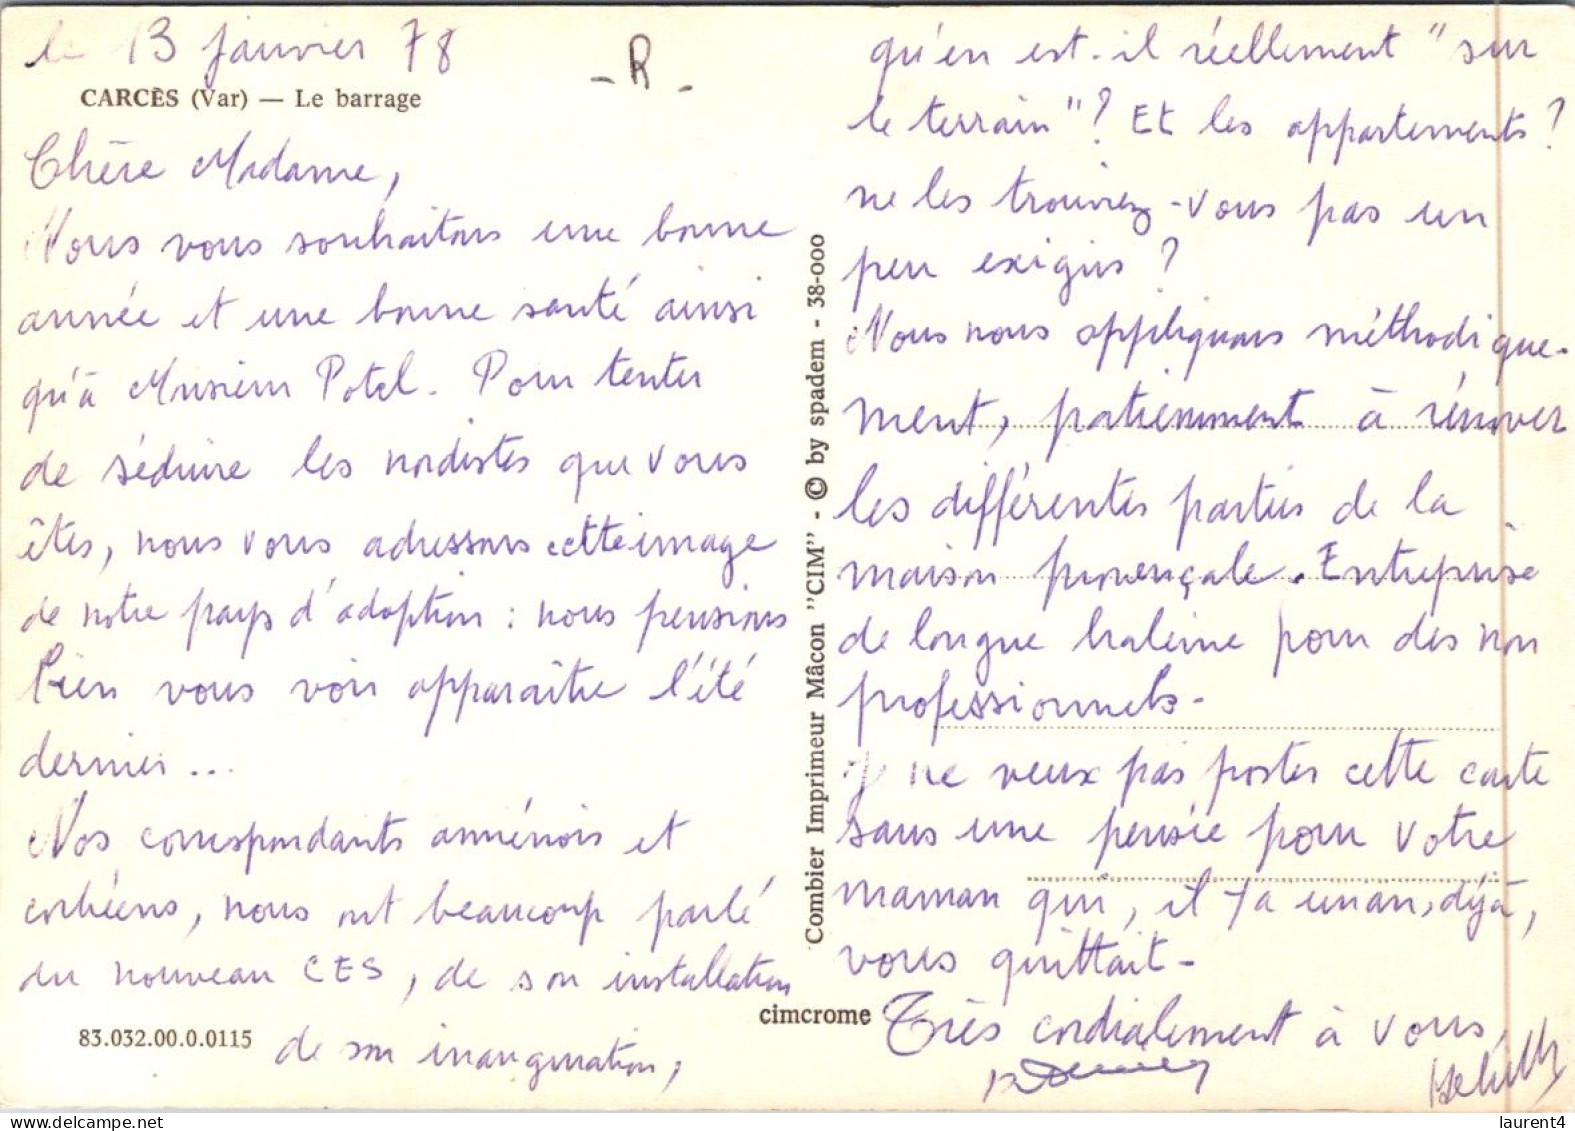 le 13 janvier 78
- R -
CARCÈS (Var) — Le barrage
Chère Madame,
Nous vous souhaitons une bonne
année et une bonne santé ainsi
qu'à Monsieur Potel. Pour tenter
de séduire les nordistes que vous
êtes, nous vous adressons cette image
de notre pays d'adoption : nous pensions
bien vous voir apparaître l'été
dernier...
Nos correspondants arménois et
corbéens, nous ont beaucoup parlé
du nouveau CES, de son installation
de son inauguration,
83.032.00.0.0115
Combier Imprimeur Mâcon "CIM" - © by spadem - 38-000
cimcrome
qu'en est-il réellement "sur
le terrain"? Et les appartements?
ne les trouvez-vous pas un
peu exigus ?
Nous nous appliquons méthodique-
ment, patiemment à rénover
les différentes parties de la
maison provençale. Entreprise
de longue haleine pour des non
professionnels-
Je ne veux pas poster cette carte
sans une pensée pour votre
maman qui, il y a un an, déjà,
vous quittait-
Très cordialement à vous,
laurent4